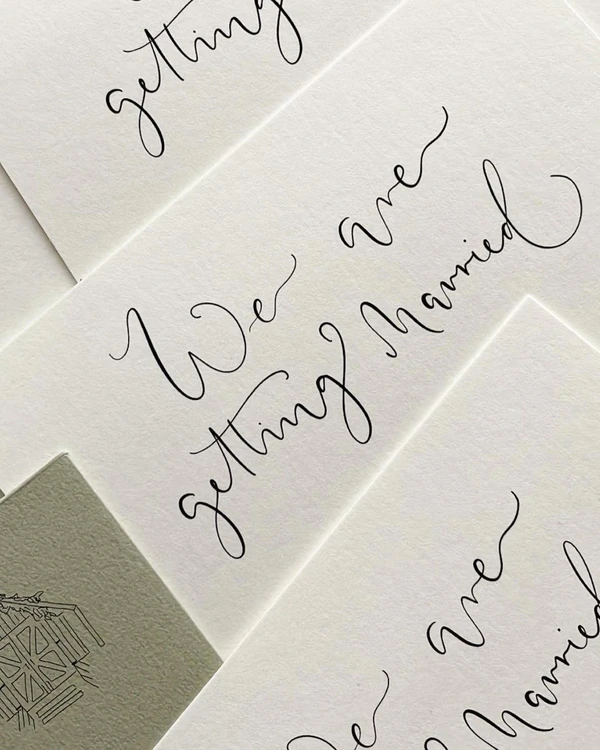 getting
We are
getting Married
We are
Married